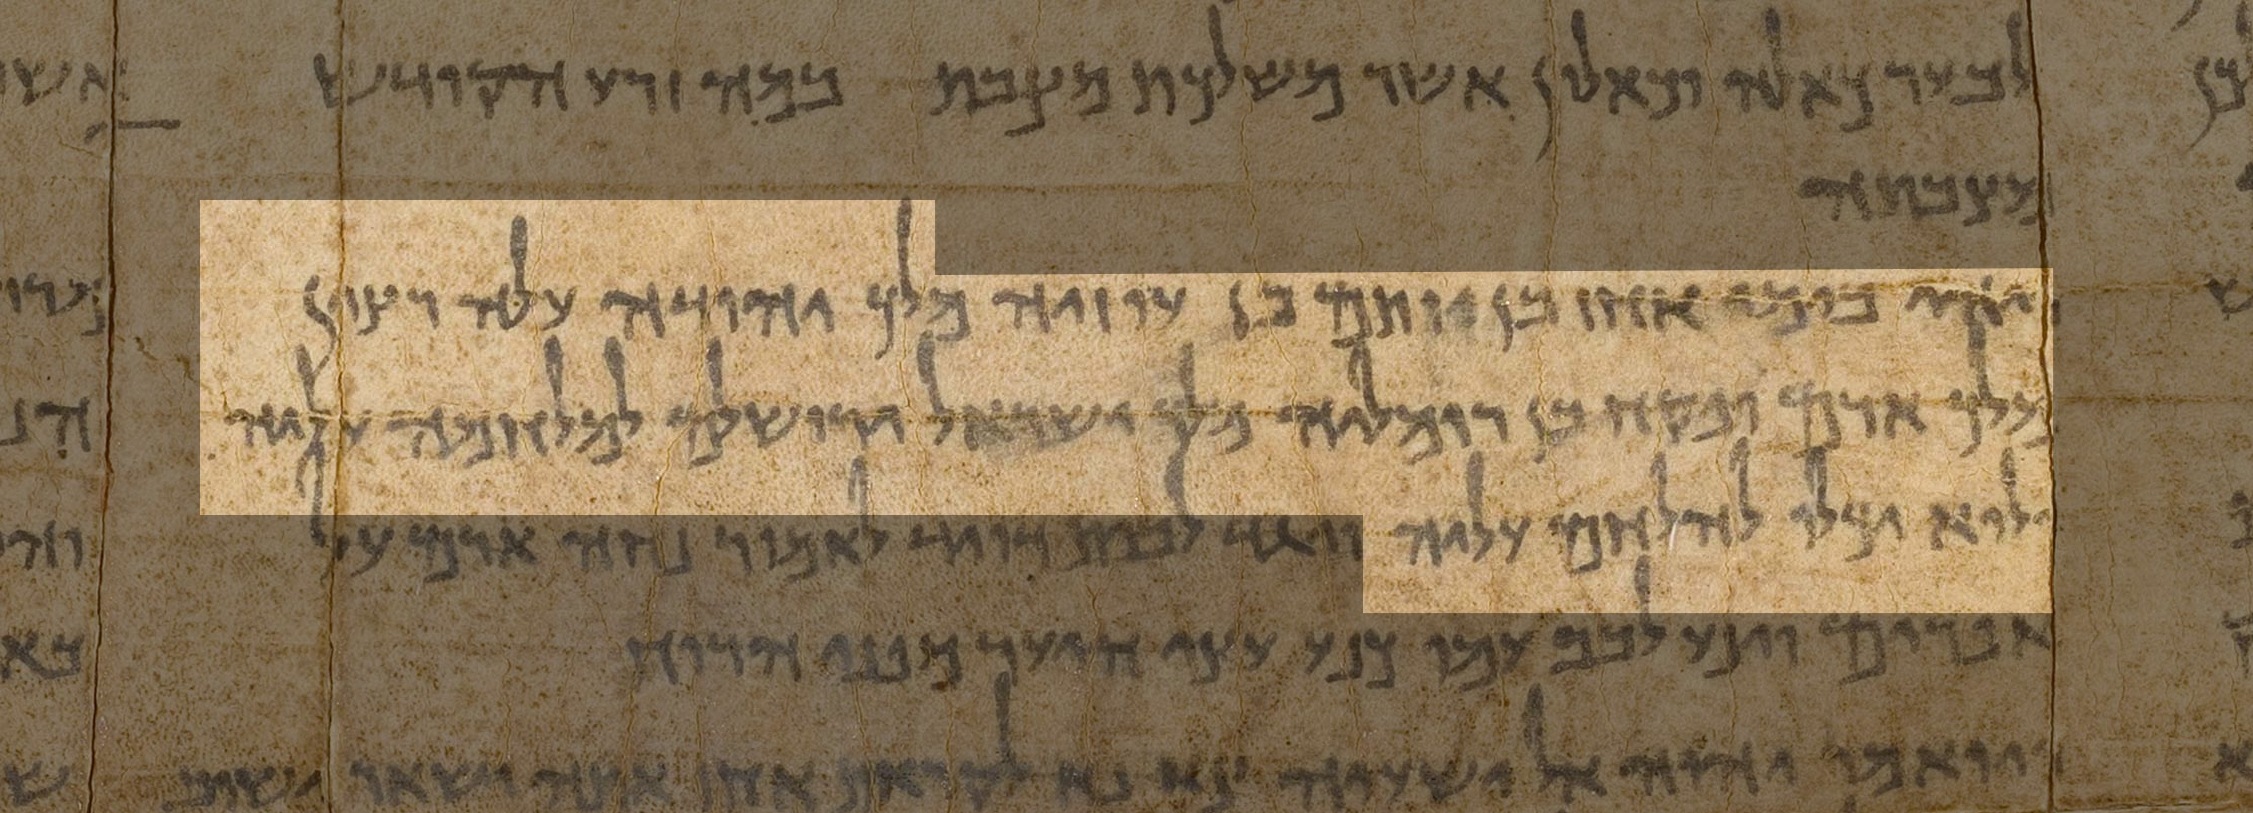 לבער כאלה וכאלון אשר משלכת מצבת במה זרע הקודש
מצבתה
ויהי בימי אחז בן יותם בן עוזיה מלך יהודה עלה רצין
מלך ארם ופקח בן רומליה מלך ישראל ירושלם למלחמה עליה
ולוא יכלו להלחם עליה ויגד לבית דויד לאמור נחה ארם על
אפרים וינע לבב עמו כנע עצי היער מפני הרוח
ויואמר יהוה אל ישעיה צא נא לקראת אחז אתה ושאר ישוב